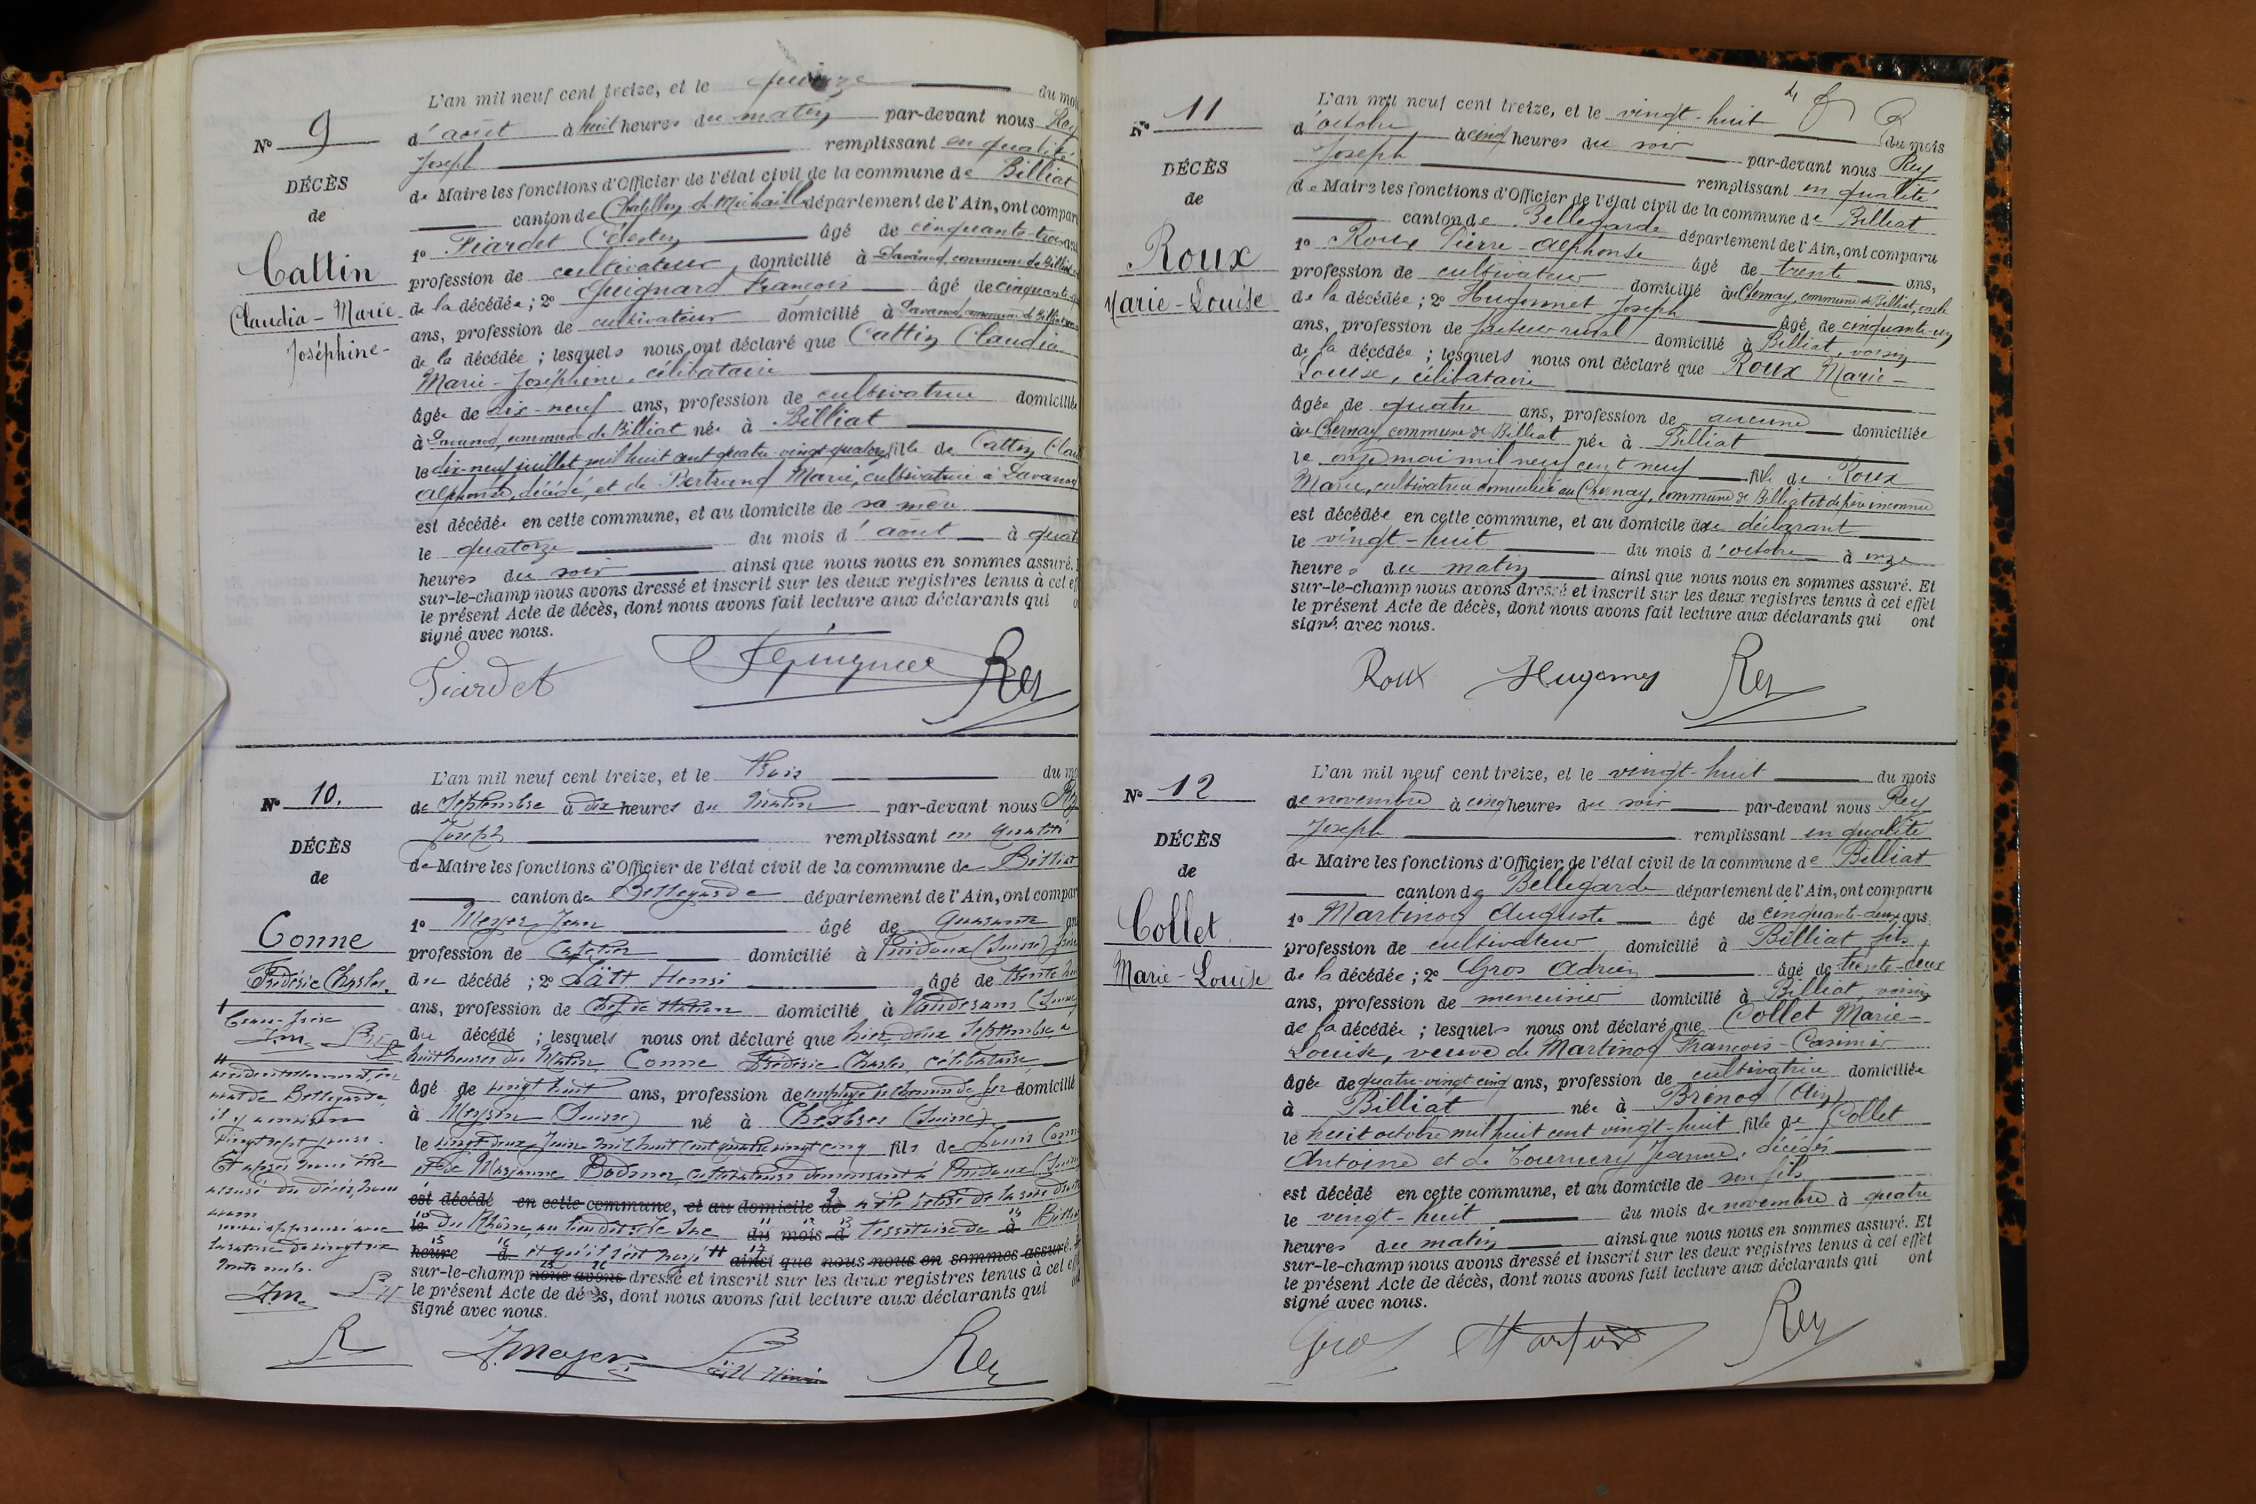 N° 9
DÉCÈS
de
Cattin
Claudia-Marie
Joséphine-
L'an mil neuf cent treize, et le quinze du moi
d'août à huit heures du matin par-devant nous Rey
Joseph remplissant en qualité
de Maire les fonctions d'Officier de l'état civil de la commune de Billiat
canton de Chatillon de Michaille département de l'Ain, ont compar
1° Fiardet Célestin âgé de cinquante-trois ans
profession de cultivateur, domicilié à Davanod, commune de Billiat
de la décédée; 2° Guignard François âgé de cinquante
ans, profession de cultivateur domicilié à Davanod, commune de Billiat
de la décédée; lesquels nous ont déclaré que Cattin Claudia
Marie-Joséphine, célibataire
âgée de dix-neuf ans, profession de cultivatrice domiciliée
à Davanod, commune de Billiat née à Billiat
le dix-neuf juillet mil huit cent quatre-vingt-quatorze fille de Cattin Clau
Alphonse, décédé, et de Bertrand Marie, cultivatrice à Davanod
est décédée en cette commune, et au domicile de sa mère
le quatorze du mois d'août à quat
heures du soir ainsi que nous nous en sommes assuré.
sur-le-champ nous avons dressé et inscrit sur les deux registres tenus à cet ef
le présent Acte de décès, dont nous avons fait lecture aux déclarants qui
signé avec nous.
Fiardet Rey
N° 10.
DÉCÈS
de
Conne
Frédéric Charles.
L'an mil neuf cent treize, et le trois du mo
de Septembre à dix heures du Matin par-devant nous Rey
Joseph remplissant en qualité
de Maire les fonctions d'Officier de l'état civil de la commune de Billiat
canton de Bellegarde département de l'Ain, ont compar
1° Meyer Jean âgé de quarante an
profession de domicilié à Puidoux (Suisse)
du décédé; 2° Lätt Henri âgé de trente
ans, profession de Chef de Station domicilié à
du décédé; lesquels nous ont déclaré que hier deux Septembre à
huit heures du Matin Conne Frédéric Charles, célibataire
âgé de vingt huit ans, profession de employé de chemin de fer domicilié
à Meyrin (Suisse) né à Chexbres (Suisse)
le vingt deux Juin mil huit cent quatre vingt cinq fils de Louis Conne
et de Marianne cultivateurs demeurant à Puidoux
est décédé en cette commune, et au domicile de a été retiré de la rive droite
le du Rhône, au lieu dit du mois d territoire de à Billiat
heure d et qu'il s'est noyé ++ ainsi que nous nous en sommes assuré.
sur-le-champ nous avons dressé et inscrit sur les deux registres tenus à cet ef
le présent Acte de décès, dont nous avons fait lecture aux déclarants qui
signé avec nous.
+
beau-frère
J.m.
++
accidentellement, en
aval de Bellegarde,
il y a environ
vingt sept jours.
Et après nous être
assuré du décès, nous
avons
renvoi approuvé avec
la rature de vingt six
mots nuls.
J.m.
R J. Meyer Lätt Henri Rey
N° 11
DÉCÈS
de
Roux
Marie-Louise
L'an mil neuf cent treize, et le vingt-huit du mois
d'octobre à cinq heures du soir par-devant nous Rey
Joseph remplissant en qualité
de Maire les fonctions d'Officier de l'état civil de la commune de Billiat
canton de Bellegarde département de l'Ain, ont comparu
1° Roux Pierre-Alphonse âgé de trente ans,
profession de cultivateur domicilié au Chernay, commune de Billiat, oncle
de la décédée; 2° Hugonnet Joseph âgé de cinquante-un
ans, profession de facteur rural domicilié à Billiat, voisin
de la décédée; lesquels nous ont déclaré que Roux Marie-
Louise, célibataire
âgée de quatre ans, profession de aucune domiciliée
au Chernay, commune de Billiat née à Billiat
le onze mai mil neuf cent neuf fille de Roux
Marie, cultivatrice domiciliée au Chernay, commune de Billiat et de père inconnu
est décédée en cette commune, et au domicile du déclarant
le vingt-huit du mois d'octobre à onze
heures du matin ainsi que nous nous en sommes assuré. Et
sur-le-champ nous avons dressé et inscrit sur les deux registres tenus à cet effet
le présent Acte de décès, dont nous avons fait lecture aux déclarants qui ont
signé avec nous.
Roux Hugonnet Rey
N° 12
DÉCÈS
de
Collet
Marie-Louise
L'an mil neuf cent treize, et le vingt-huit du mois
de novembre à cinq heures du soir par-devant nous Rey
Joseph remplissant en qualité
de Maire les fonctions d'Officier de l'état civil de la commune de Billiat
canton de Bellegarde département de l'Ain, ont comparu
1° Martinod Auguste âgé de cinquante-deux ans
profession de cultivateur domicilié à Billiat, fils,
de la décédée; 2° Gros Adrien âgé de trente-deux
ans, profession de menuisier domicilié à Billiat, voisin
de la décédée; lesquels nous ont déclaré que Collet Marie-
Louise, veuve de Martinod François-Casimir
âgée de quatre-vingt cinq ans, profession de cultivatrice domiciliée
à Billiat née à Brénod (Ain)
le huit octobre mil huit cent vingt-huit fille de Collet
Antoine et de Tournery Jeanne, décédés
est décédé en cette commune, et au domicile de son fils
le vingt-huit du mois de novembre à quatre
heures du matin ainsi que nous nous en sommes assuré. Et
sur-le-champ nous avons dressé et inscrit sur les deux registres tenus à cet effet
le présent Acte de décès, dont nous avons fait lecture aux déclarants qui ont
signé avec nous.
Gros Rey